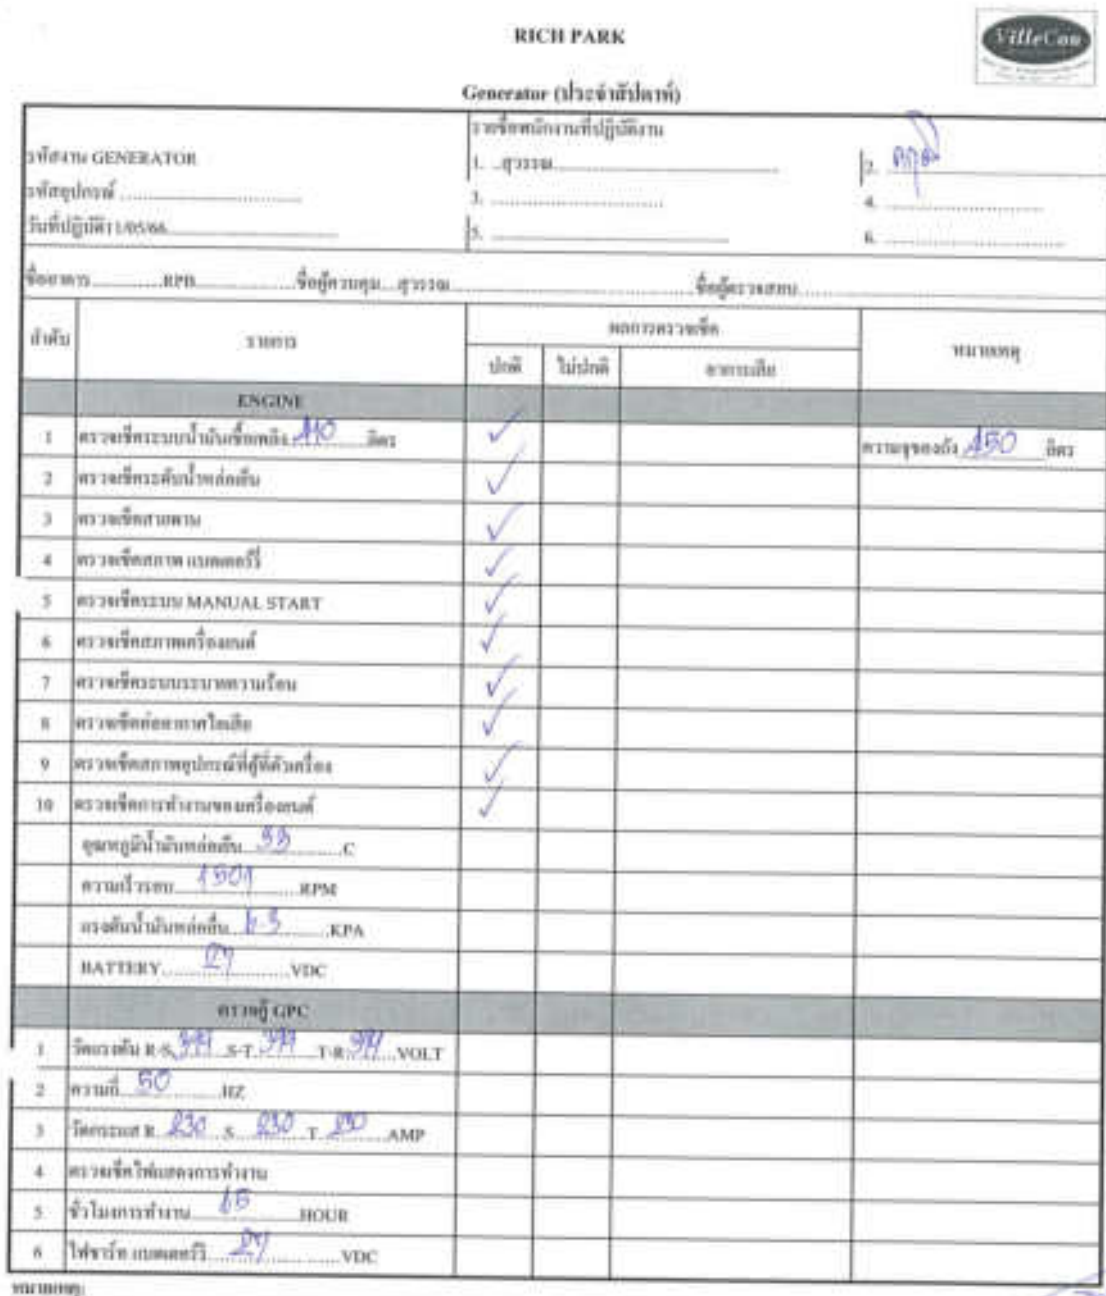 RICH PARK
VilleCon
Generator (ประจำสัปดาห์)
รหัสงาน GENERATOR
รหัสอุปกรณ์
วันที่ปฏิบัติ 11/05/66
รายชื่อพนักงานที่ปฏิบัติงาน
1. สุวรรณ
2.
3.
4.
5.
6.
ชื่ออาคาร RPB ชื่อผู้ควบคุม สุวรรณ ชื่อผู้ตรวจสอบ
ลำดับ รายการ ผลการตรวจเช็ค หมายเหตุ
ปกติ ไม่ปกติ อาการเสีย
ENGINE
1 ตรวจเช็คระบบน้ำมันเชื้อเพลิง 110 ลิตร ✓ ความจุของถัง 150 ลิตร
2 ตรวจเช็คระดับน้ำหล่อเย็น ✓
3 ตรวจเช็คสายพาน ✓
4 ตรวจเช็คสภาพ แบตเตอร์รี่ ✓
5 ตรวจเช็คระบบ MANUAL START ✓
6 ตรวจเช็คสภาพเครื่องยนต์ ✓
7 ตรวจเช็คระบบระบายความร้อน ✓
8 ตรวจเช็คท่ออากาศไอเสีย ✓
9 ตรวจเช็คสภาพอุปกรณ์ที่ตู้ที่ตัวเครื่อง ✓
10 ตรวจเช็คการทำงานของเครื่องยนต์ ✓
อุณหภูมิน้ำมันหล่อเย็น C
ความเร็วรอบ 1501 RPM
แรงดันน้ำมันหล่อลื่น KPA
BATTERY 27 VDC
ตรวจตู้ GPC
1 วัดแรงดัน R-S S-T T-R VOLT
2 ความถี่ 50 HZ
3 วัดกระแส R 230 S 230 T 230 AMP
4 ตรวจเช็คไฟแสดงการทำงาน
5 ชั่วโมงการทำงาน HOUR
6 ไฟชาร์ท แบตเตอร์รี่ 27 VDC
หมายเหตุ: